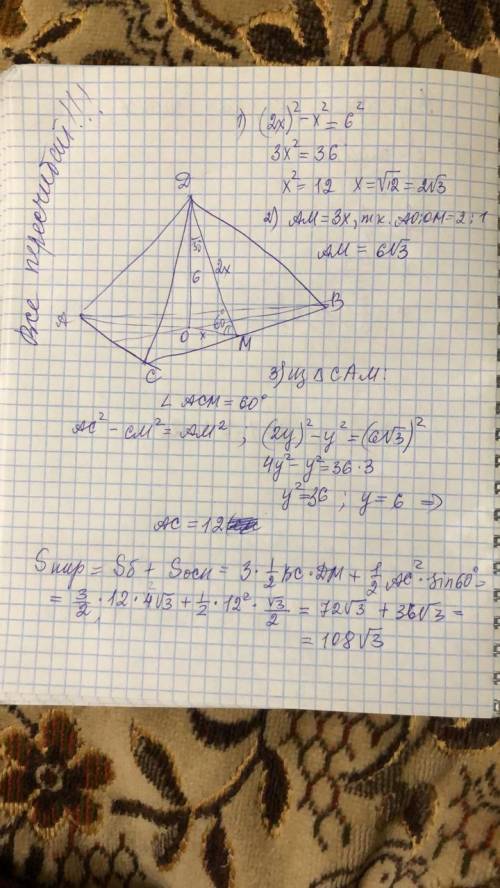 Все пересчитай!!!
1) (2x)² - x² = 6²
3x² = 36
x² = 12 x = √12 = 2√3
2) AM = 3x, т.к. AO:OM = 2:1
AM = 6√3
D
30
6
2x
60°
O
x
M
B
C
3) Из Δ CAM:
∠ ACM = 60°
AC² - CM² = AM² ; (2y)² - y² = (6√3)²
4y² - y² = 36·3
y² = 36 ; y = 6 ⇒
AC = 12
Sпир = Sб + Sосн = 3·½ BC·DM + ½ AC²·sin60° =
= 3/2 · 12 · 4√3 + ½ · 12² · √3/2 = 72√3 + 36√3 =
= 108√3